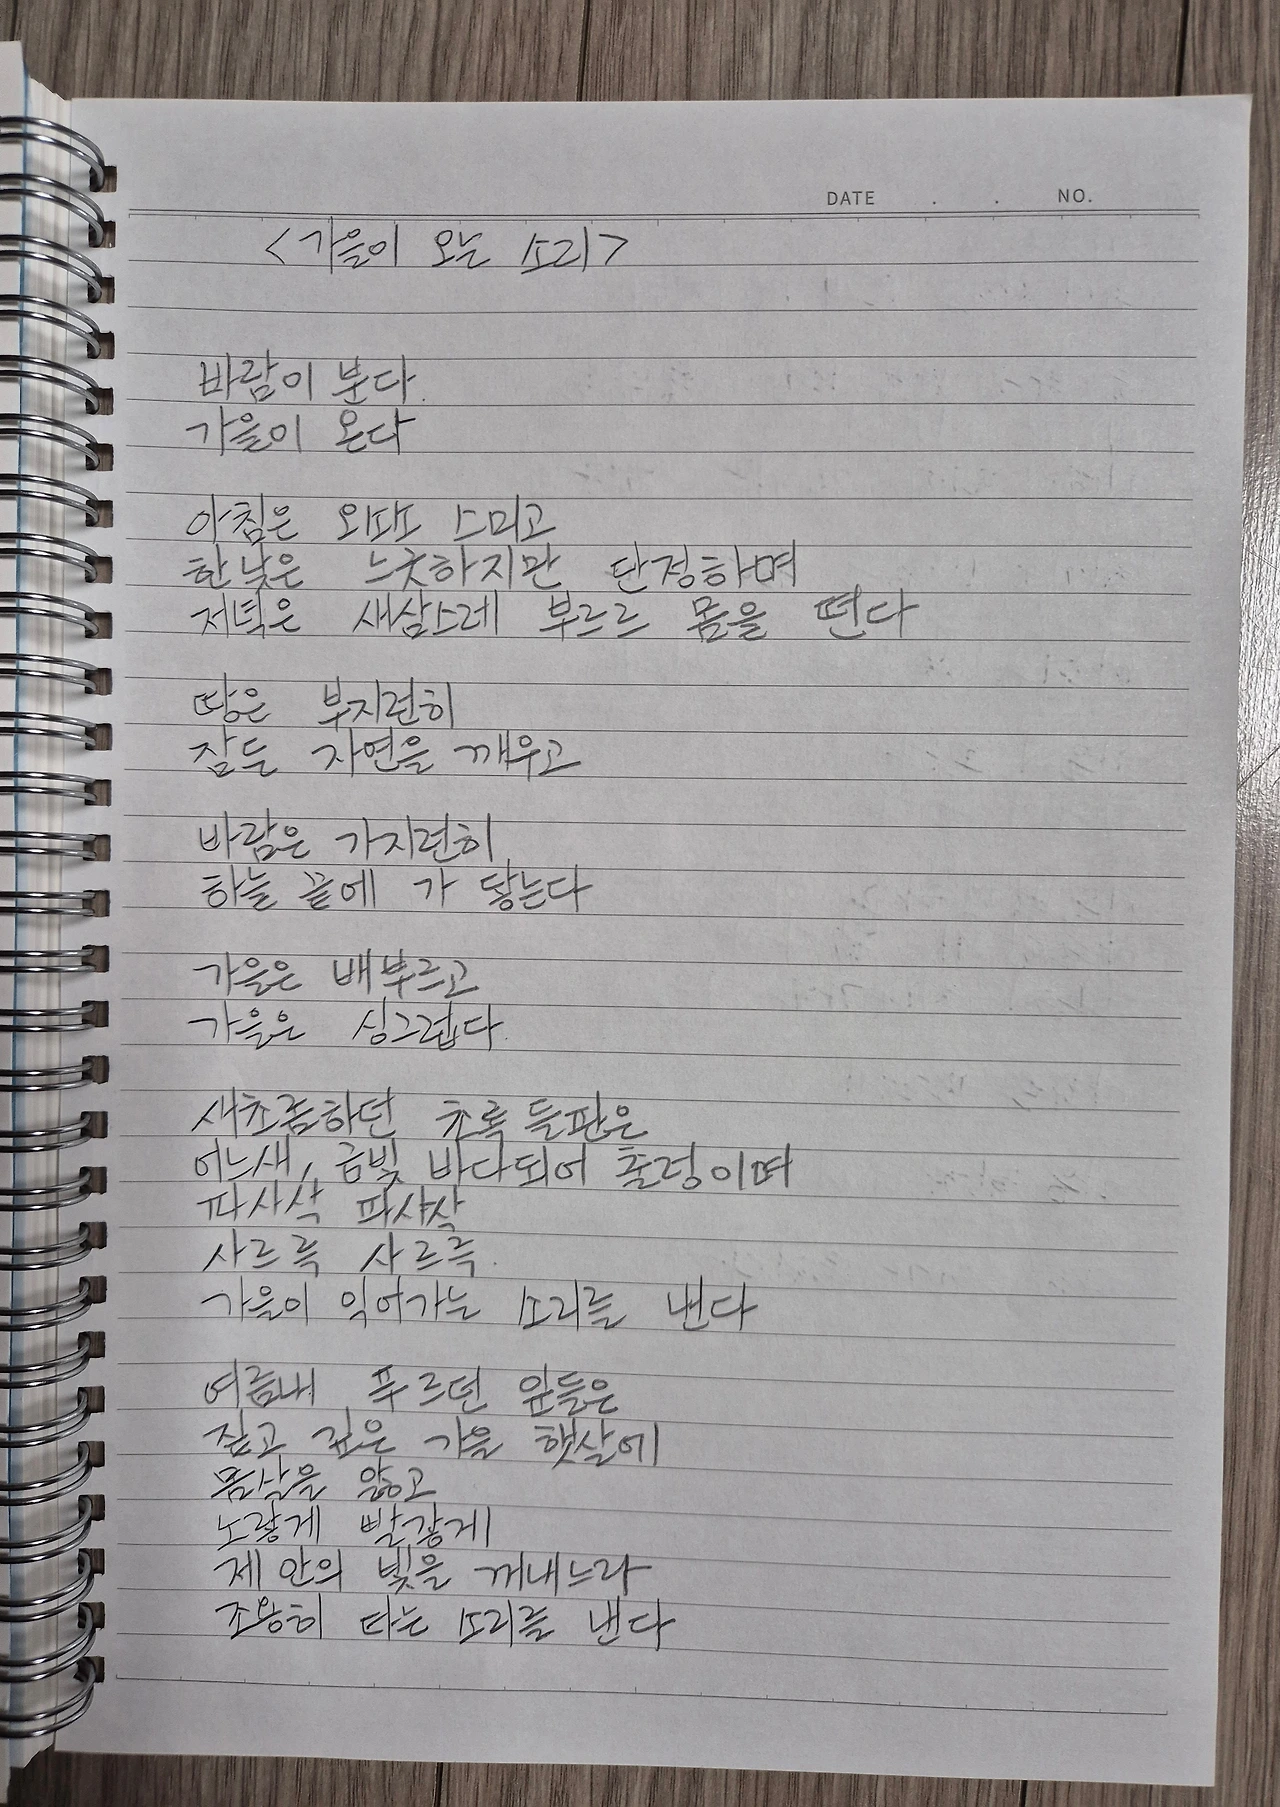 DATE . . NO.
<가을이 오는 소리>
바람이 분다.
가을이 온다
아침은 외따로 스미고
한낮은 느긋하지만 단정하며
저녁은 새삼스레 부르르 몸을 떤다
땅은 부지런히
잠든 자연을 깨우고
바람은 가지런히
하늘 끝에 가 닿는다
가을은 배부르고
가을은 싱그럽다.
새초롬하던 초록 들판은
어느새, 금빛 바다되어 출렁이며
파사삭 파사삭
사르륵 사르륵.
가을이 익어가는 소리를 낸다
여름내 푸르던 잎들은
짙고 깊은 가을 햇살에
몸살을 앓고
노랗게 빨갛게
제 안의 빛을 꺼내느라
조용히 타는 소리를 낸다